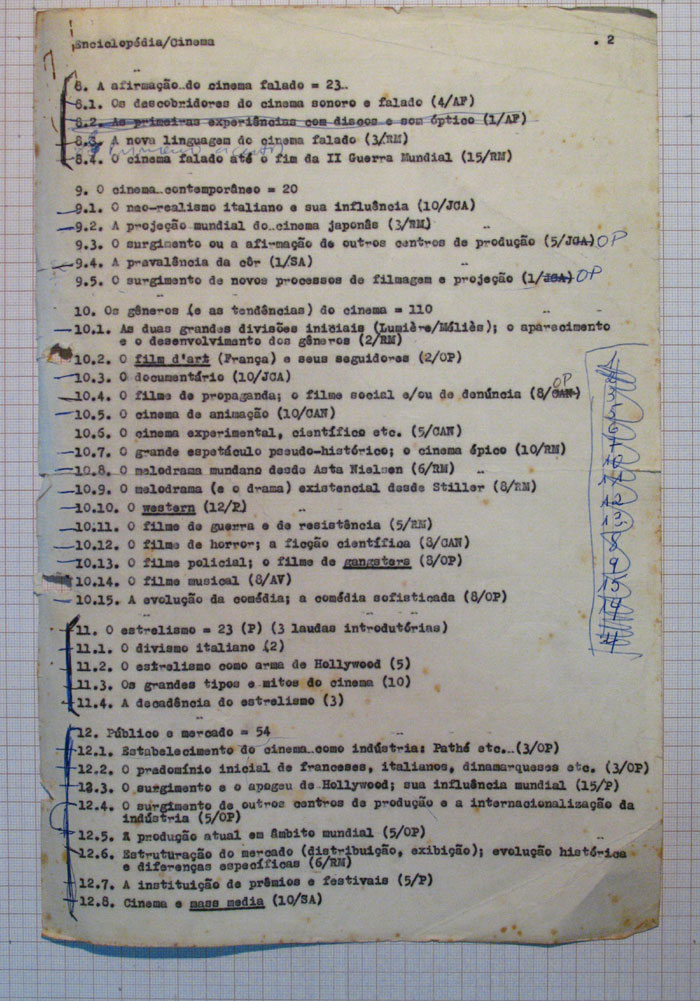 Enciclopédia/Cinema . 2
8. A afirmação do cinema falado = 23
8.1. Os descobridores do cinema sonoro e falado (4/AF)
8.2. As primeiras experiências com discos e som óptico (1/AF)
8.3. A nova linguagem do cinema falado (3/RM)
8.4. O cinema falado até o fim da II Guerra Mundial (15/RM)
9. O cinema contemporâneo = 20
9.1. O neo-realismo italiano e sua influência (10/JCA)
9.2. A projeção mundial do cinema japonês (3/RM)
9.3. O surgimento ou a afirmação de outros centros de produção (5/JCA) OP
9.4. A prevalência da côr (1/SA)
9.5. O surgimento de novos processos de filmagem e projeção (1/JCA) OP
10. Os gêneros (e as tendências) do cinema = 110
10.1. As duas grandes divisões iniciais (Lumière/Méliès); o aparecimento
e o desenvolvimento dos gêneros (2/RM)
10.2. O film d'art (França) e seus seguidores (2/OP)
10.3. O documentário (10/JCA)
OP
10.4. O filme de propaganda; o filme social e/ou de denúncia (8/CAN)
10.5. O cinema de animação (10/CAN)
10.6. O cinema experimental, científico etc. (5/CAN)
10.7. O grande espetáculo pseudo-histórico; o cinema épico (10/RM)
10.8. O melodrama mundano desde Asta Nielsen (6/RM)
10.9. O melodrama (e o drama) existencial desde Stiller (8/RM)
10.10. O western (12/P)
10.11. O filme de guerra e de resistência (5/RM)
10.12. O filme de horror; a ficção científica (8/CAN)
10.13. O filme policial; o filme de gangsters (8/OP)
10.14. O filme musical (8/AV)
10.15. A evolução da comédia; a comédia sofisticada (8/OP)
11. O estrelismo = 23 (P) (3 laudas introdutórias)
11.1. O divismo italiano (2)
11.2. O estrelismo como arma de Hollywood (5)
11.3. Os grandes tipos e mitos do cinema (10)
11.4. A decadência do estrelismo (3)
12. Público e mercado = 54
12.1. Estabelecimento do cinema como indústria: Pathé etc. (3/OP)
12.2. O predomínio inicial de franceses, italianos, dinamarqueses etc. (3/OP)
12.3. O surgimento e o apogeu de Hollywood; sua influência mundial (15/P)
12.4. O surgimento de outros centros de produção e a internacionalização da
indústria (5/OP)
12.5. A produção atual em âmbito mundial (5/OP)
12.6. Estruturação do mercado (distribuição, exibição); evolução histórica
e diferenças específicas (6/RM)
12.7. A instituição de prêmios e festivais (5/P)
12.8. Cinema e mass media (10/SA)